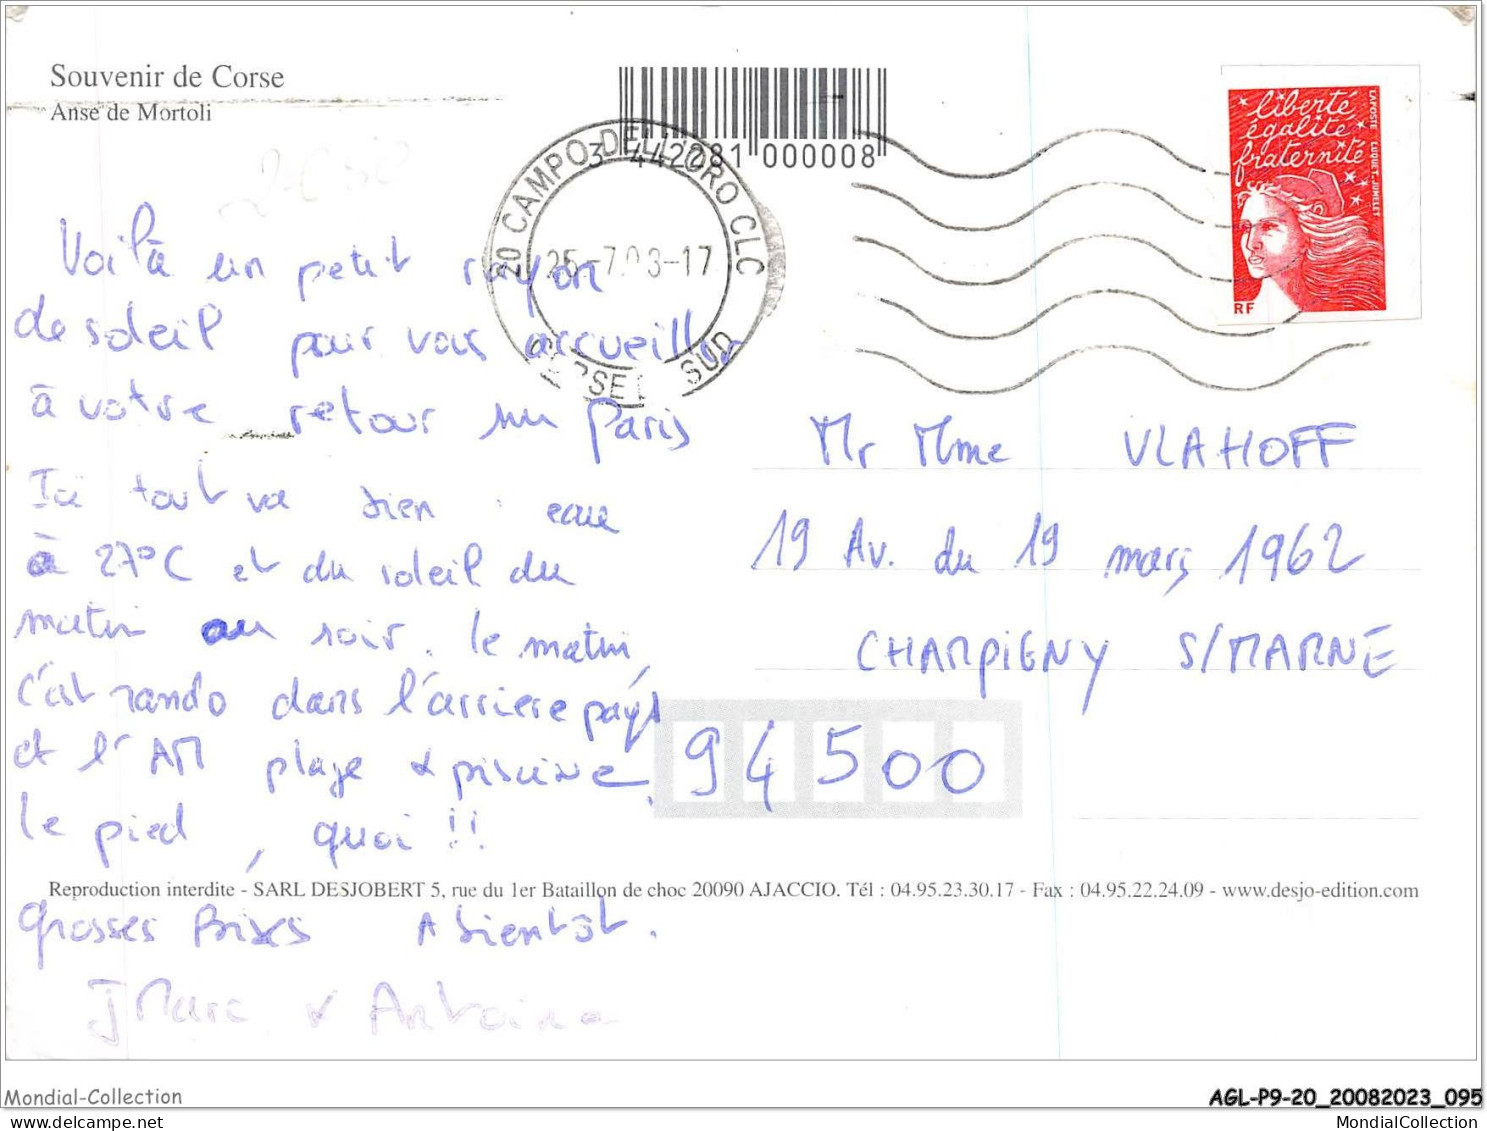 Souvenir de Corse
Anse de Mortoli
3 442081 000008
20 CAMPO DELL ORO CLC
25-7.03-17
CORSE SUD
liberté
égalité
fraternité
LAPOSTE LUQUET-JUMELET
RF
Voilà un petit rayon
de soleil pour vous accueillir
à votre retour sur Paris
Ici tout va bien : eau
à 27°C et du soleil du
matin au soir. Le matin,
c'est rando dans l'arrière pays
et l'AM plage & piscine.
Le pied, quoi !!
Grosses Bises A bientôt.
J Marc & Antoine
Mr Mme VLAHOFF
19 Av. du 19 mars 1962
CHAMPIGNY S/MARNE
94500
Reproduction interdite - SARL DESJOBERT 5, rue du 1er Bataillon de choc 20090 AJACCIO. Tél : 04.95.23.30.17 - Fax : 04.95.22.24.09 - www.desjo-edition.com
Mondial-Collection
AGL-P9-20_20082023_095
MondialCollection